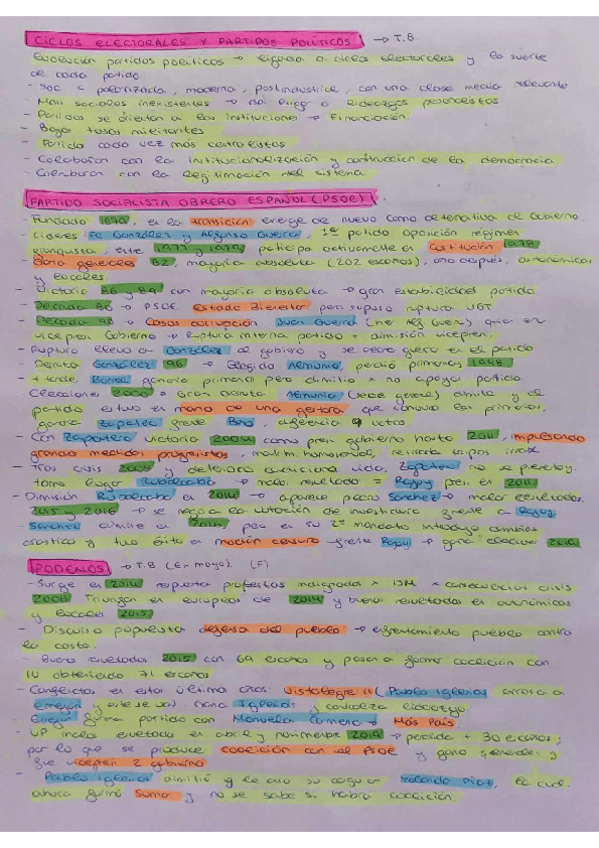 CICLOS ELECTORALES Y PARTIDOS POLÍTICOS → T.8
Evolución partidos políticos → ligada a ciclos electorales y la suerte
de cada partido
- Soc polarizada, moderna, postindustrial, con una clase media relevante
- Mov sociales inexistentes → no liderazgos
- Partidos se a las instituciones → Financiación.
- Bajas tasas militantes
- Partido cada vez más centralistas
- Colaboran con la institucionalización y construcción de la democracia.
- Con la legitimación del sistema
PARTIDO SOCIALISTA OBRERO ESPAÑOL (PSOE)
- Fundado 1879, en la transición emerge de nuevo como alternativa de Gobierno.
- Líderes Fe González y Alfonso Guerra, 1º partido oposición régimen
franquista, entre 1977 y 1979 participa activamente en Constitución 1978
- Gana generales 82, mayoría absoluta (202 escaños), año después, autonómicas
y locales
- Victoria 86 y 89 con mayoría absoluta → gran estabilidad partido
- Década 80 → PSOE Estado Bienestar pero supuso ruptura UGT
- Década 90 → Casos corrupción Juan Guerra quien era
vicepresi. Gobierno → Ruptura interna partido + dimisión vicepresi.
- Ruptura llevó a González al gobierno y se Guerra en el partido
- Derrota González 96 → Elegido Almunia, perdió primarias 1998
- + tarde Borrell ganaría primarias pero dimitió x no apoyo partido
Elecciones 2000 → Gran derrota Almunia dimite y el
partido estuvo en mano de una gestora que convocó las primarias,
ganará Zapatero frente Bono, diferencia 9 votos.
- Con Zapatero victoria 2004 como presi gobierno hasta 2011, impulsando
grandes medidas progresistas, matrim. homosexual, retirada tropas Irak
- Tras crisis 2008 y deterioro condiciones vida, Zapatero no se presentó.
toma lugar Rubalcaba → malos resultados = Rajoy presi. en el 2011
- Dimisión Rubalcaba en 2014 → aparece Pedro Sanchez → malos resultados.
2015 y 2016 → se negó a la votación de investidura frente a Rajoy.
- Sanchez dimite en pero en su 2º mandato introdujo cambios
drástico y tuvo éxito en moción censura → frente Rajoy → ganó elecciones 2019
PODEMOS → T.8 (Ex mayo). (F)
- Surge en 2014 respuesta protestas indignados x 15M x consecuencias crisis
2008. Triunfan en europeas de 2014 y buenos resultados en autonómicas
y locales 2015
- Discurso populista defensa del pueblo → enfrentamiento pueblo contra
la casta.
- Buenos resultados 2015 con 69 escaños y pasan a formar coalición con
IU obteniendo 71 escaños
- Conflictos en estos últimos años: Vistalegre II (Pablo Iglesias a
Errejón y este se va). Gana Iglesias y consolida liderazgo.
Errejón forma partido con Manuela Carmena → Más País.
- UP malos resultados en abril y noviembre 2019 → perdió + 30 escaños,
por lo que se produce coalición con el PSOE y gana generales y
fue vicepresi 2 gobierno
- Pablo Iglesias dimitió y le dio su cargo a Yolanda Díaz, la cual
ahora formó Sumar y no se sabe si habrá coalición.